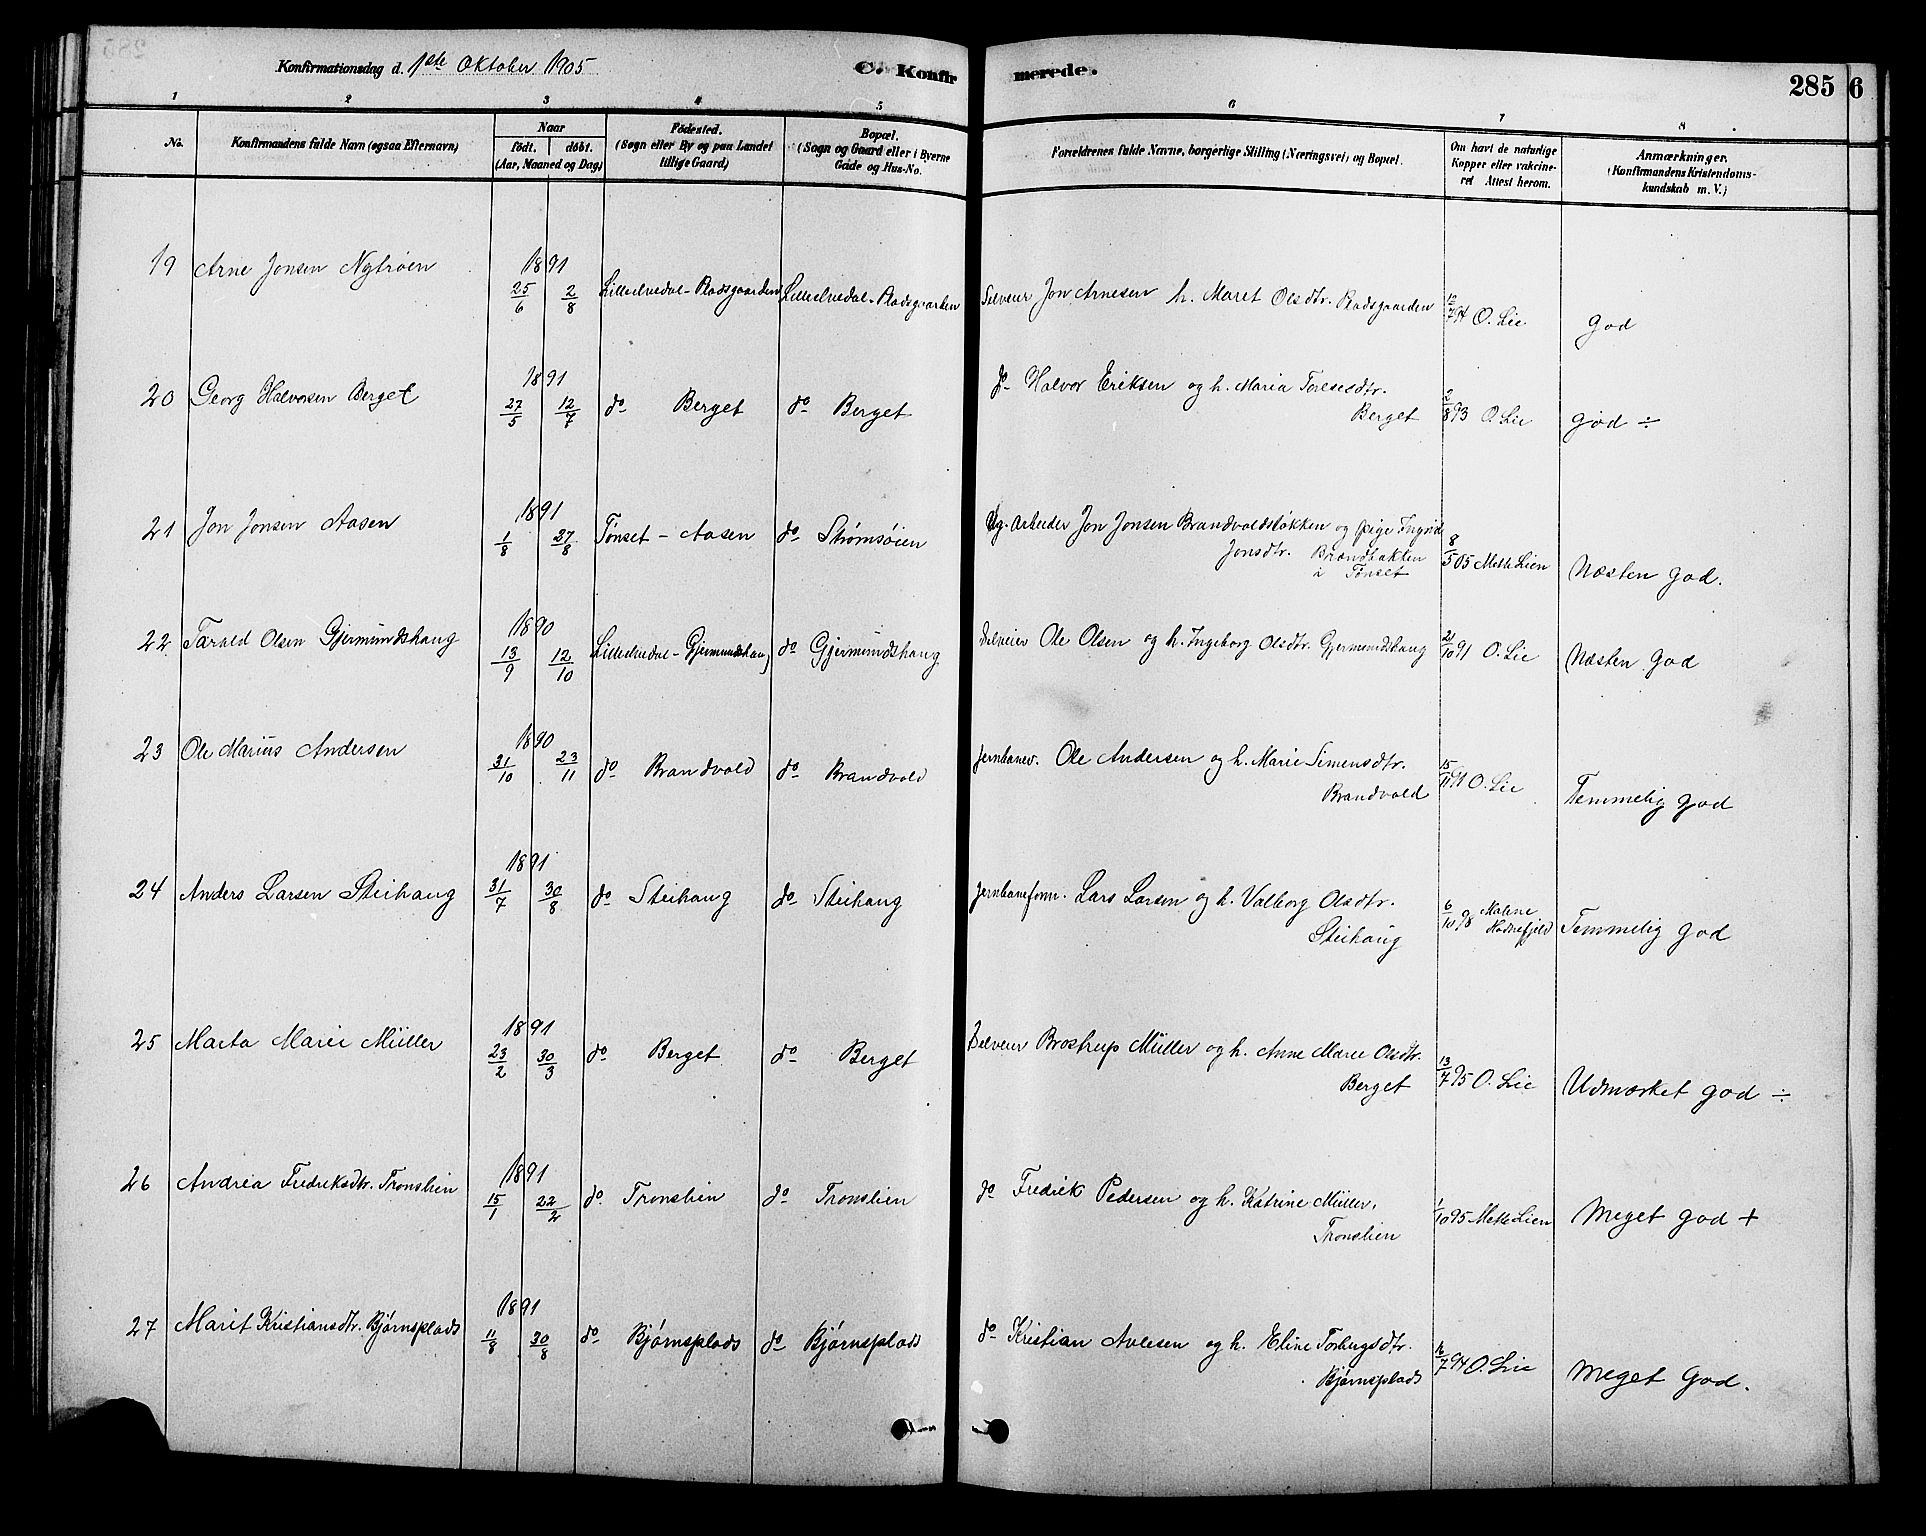 Konfirmationsdag d. 1ste Oktober 1905
C. Konfirmerede.
285 6
1 2 3 4 5 6 7 8
No.
Konfirmandens fulde Navn (ogsaa Efternavn)
Naar
født. døbt.
(Aar, Maaned og Dag)
Fødested.
(Sogn eller By og paa Landet
tillige Gaard)
Bopæl.
(Sogn og Gaard eller i Byerne
Gade og Hus-No.
Forældrenes fulde Navne, borgerlige Stilling (Næringsvei) og Bopæl.
Om havt de naturlige
Kopper eller vakcine-
ret Attest herom.
Anmærkninger.
(Konfirmandens Kristendoms-
kundskab m. V.)
19 Arne Jonsen Nytrøen 1891 25/6 2/8 Lilleelvedal - Pladsgaarden Lilleelvedal - Pladsgaarden Selveier Jon Arnesen h. Maret Olsdtr. Pladsgaarden 94 O. Lie God
20 Georg Halvorsen Berget 1891 27/5 12/7 do Berget do Berget do Halvor Eriksen og h. Maria Toresesdtr.
Berget 2/8 93 O. Lie god ÷
21 Jon Jonsen Aasen 1891 1/8 27/8 Tønset - Aasen do Strømsøien Ug. Arbeider Jon Jonsen Brandvoldsløkken og pige Ingrid
Jonsdtr. Brændbakken
i Tønset 8/5 05 Mette Lien Næsten god.
22 Tarald Olsen Gjermundshaug 1890 13/9 12/10 Lilleelvedal - Gjermundshaug do Gjermundshaug Selveier Ole Olsen og h. Ingeborg Olsdtr. Gjermundshaug 21/10 91 O. Lie Næsten god
23 Ole Marius Andersen 1890 31/10 23/11 do Brandvold do Brandvold Jernbanev. Ole Andersen og h. Marie Simensdtr.
Brandvold 15/11 91 O. Lie Temmelig god
24 Anders Larsen Steihaug 1891 31/7 30/8 do Steihaug do Steihaug Jernbaneform. Lars Larsen og h. Valborg Olsdtr.
Steihaug 6/10 98 Malene
Hodnefjeld Temmelig god
25 Marta Marie Müller 1891 23/2 30/3 do Berget do Berget Selveier Brostrup Müller og h. Anne Marie Olsdtr.
Berget 13/7 95 O. Lie Udmærket god ÷
26 Andrea Fredriksdtr. Tronslien 1891 15/1 22/2 do Tronslien do Tronslien do Fredrik Pedersen og h. Katrine Müller,
Tronslien 1/10 95 Mette Lien Meget god +
27 Marit Kristiansdtr. Bjørnsplads 1891 11/8 30/8 do Bjørnsplads do Bjørnsplads do Kristian Avlesen og h. Eline Torbugsdtr.
Bjørnsplads 16/7 94 O. Lie Meget god.